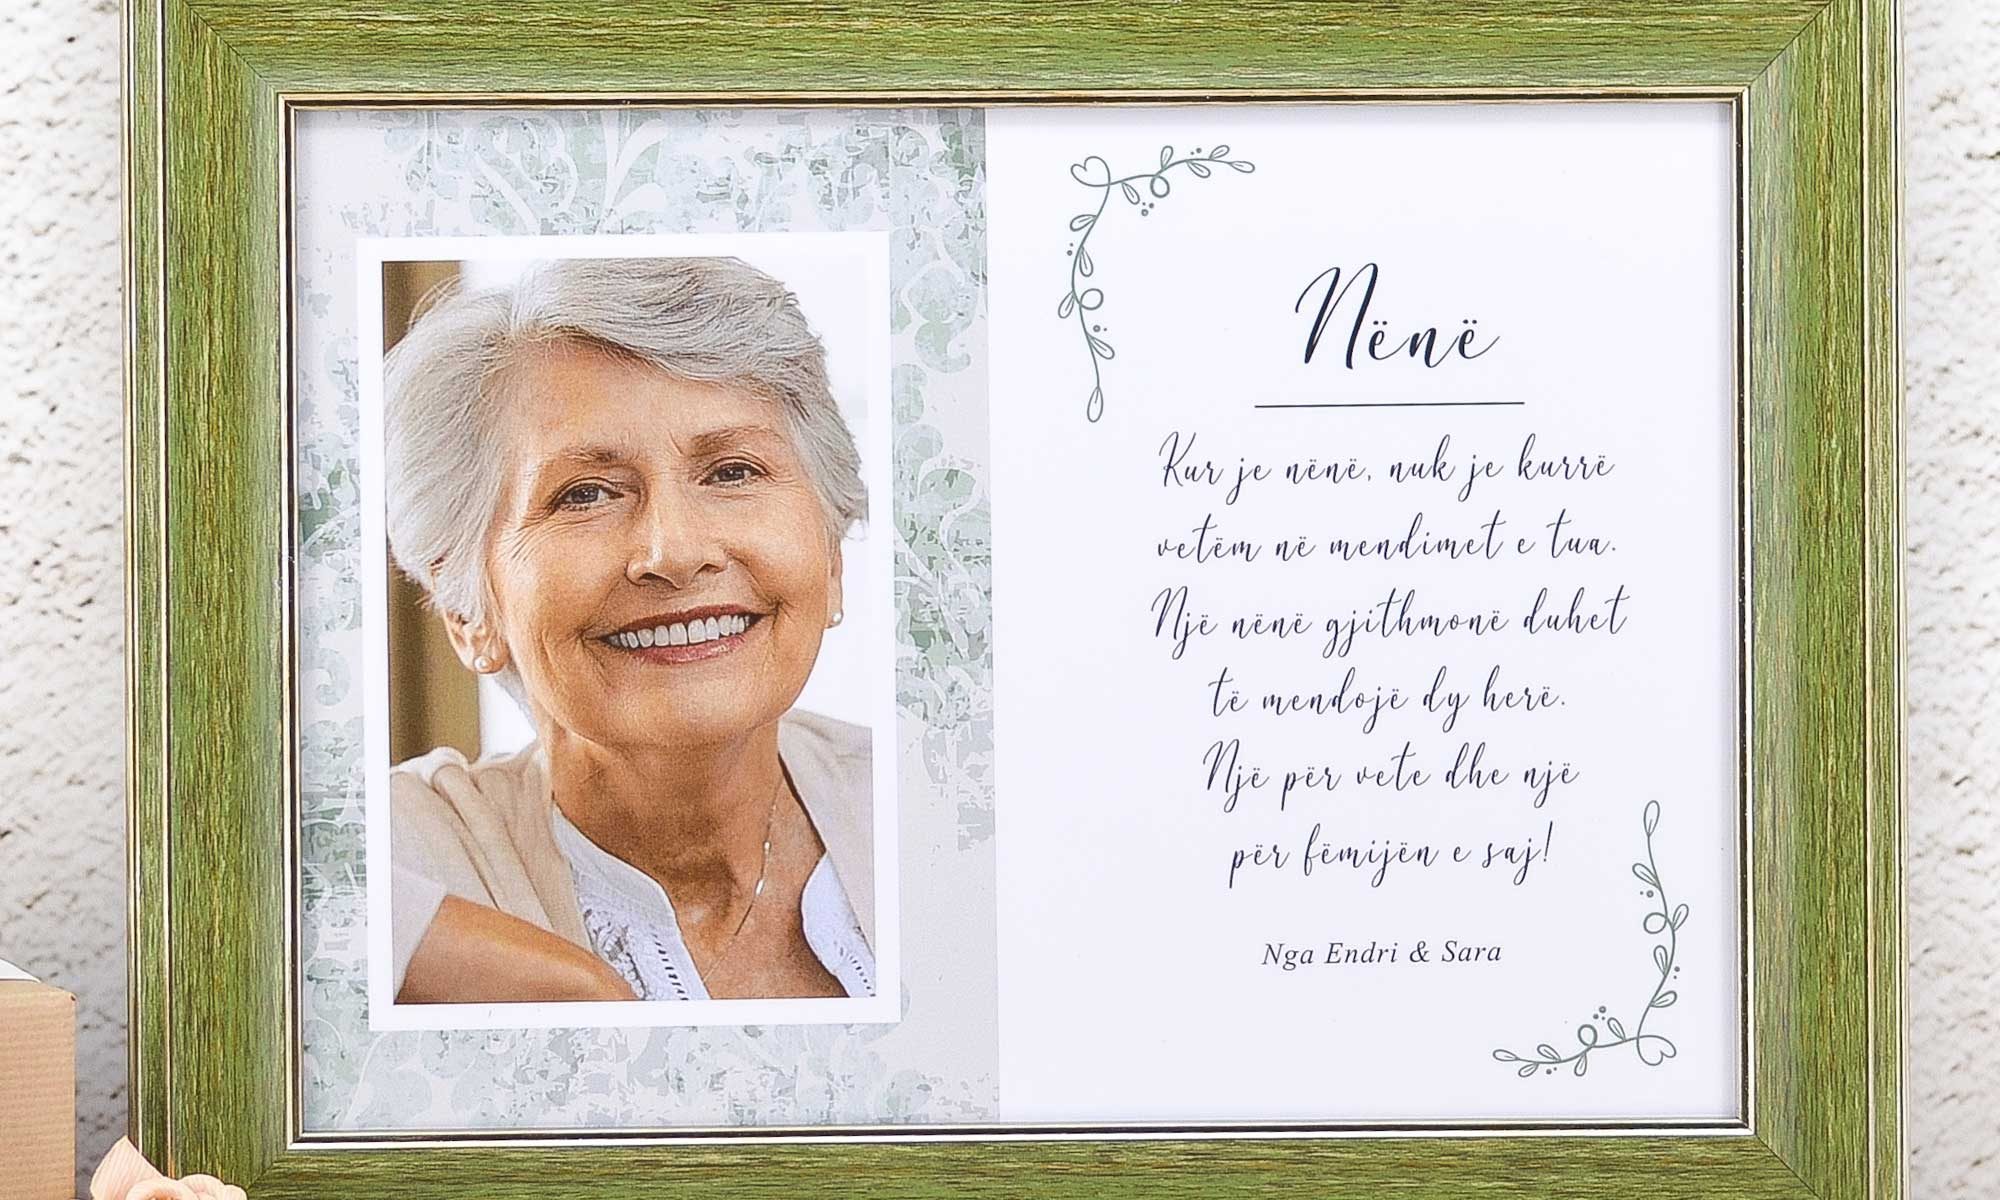 Nënë
Kur je nënë, nuk je kurrë
vetëm në mendimet e tua.
Një nënë gjithmonë duhet
të mendojë dy herë.
Një për vete dhe një
për fëmijën e saj!
Nga Endri & Sara